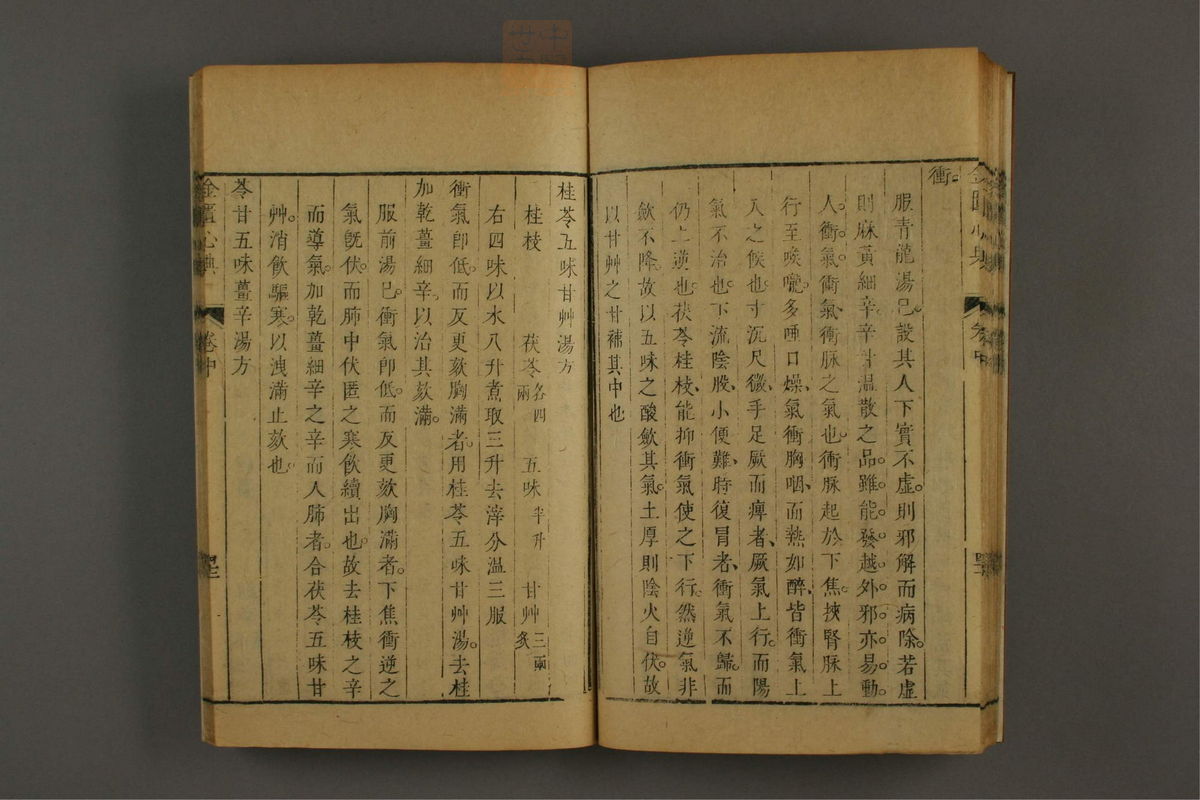 金匱心典
卷中
衝。
服青龍湯已。設其人下實不虛。則邪解而病除。若虛
則麻黃細辛辛甘溫散之品。雖能發越外邪。亦易動
人。衝氣。衝氣衝脉之氣也。衝脉起於下焦。挾腎脉上
行至喉嚨。多唾口燥、氣衝胸咽、面熱如醉、皆衝氣上
入之候也。寸沉尺微、手足厥而痺者、厥氣上行。而陽
氣不治也。下流陰股、小便難、時復冒者、衝氣不歸。而
仍上逆也。茯苓桂枝、能抑衝氣使之下行。然逆氣非
歛不降。故以五味之酸歛其氣。土厚則陰火自伏。故
以甘艸之甘補其中也
桂苓五味甘艸湯方
桂枝 茯苓各四兩 五味半升 甘艸三兩炙
右四味以水八升煮取三升去滓分溫三服
衝氣卽低。而反更欬胸滿者。用桂苓五味甘艸湯。去桂
加乾薑細辛。以治其欬滿。
服前湯已。衝氣卽低。而反更欬胸滿者。下焦衝逆之
氣旣伏。而肺中伏匿之寒飲續出也。故去桂枝之辛
而導氣。加乾薑細辛之辛而入肺者。合茯苓五味甘
艸。消飲驅寒。以洩滿止欬也。
苓甘五味薑辛湯方
金匱心典
卷中